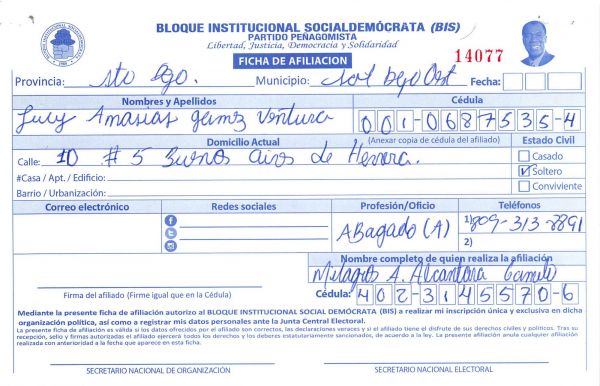 BLOQUE INSTITUCIONAL SOCIALDEMÓCRATA (BIS)
PARTIDO PEÑAGOMISTA
Libertad, Justicia, Democracia y Solidaridad
FICHA DE AFILIACION
14077
Provincia: Sto Dgo. Municipio: Sto Dgo Oest Fecha:
Nombres y Apellidos Cédula
Lucy Amasias Gomez Ventura 001-0687535-4
Domicilio Actual (Anexar copia de cédula del afiliado) Estado Civil
Calle: 10 # 5 Buenos Aires de Herrera. Casado
#Casa / Apt. / Edificio: Soltero
Barrio / Urbanización: Conviviente
Correo electrónico Redes sociales Profesión/Oficio Teléfonos
Abagado (A) 1) 809-313-2891
2)
Nombre completo de quien realiza la afiliación
Milagros A. Alcantara Camilo
Firma del afiliado (Firme igual que en la Cédula) Cédula: 402-3145570-6
Mediante la presente ficha de afiliación autorizo al BLOQUE INSTITUCIONAL SOCIAL DEMÓCRATA (BIS) a realizar mi inscripción única y exclusiva en dicha
organización política, así como a registrar mis datos personales ante la Junta Central Electoral.
La presente ficha de afiliación es válida si los datos ofrecidos por el afiliado son correctos, las declaraciones veraces y si el afiliado tiene el disfrute de sus derechos civiles y políticos. Tras su
recepción, sello y firmas autorizadas el afiliado ejercerá todos los derechos y los deberes estatutariamente sancionados, de acuerdo a la ley. La presente afiliación anula cualquier afiliación
realizada con anterioridad a la fecha que aparece en esta ficha.
SECRETARIO NACIONAL DE ORGANIZACIÓN SECRETARIO NACIONAL ELECTORAL